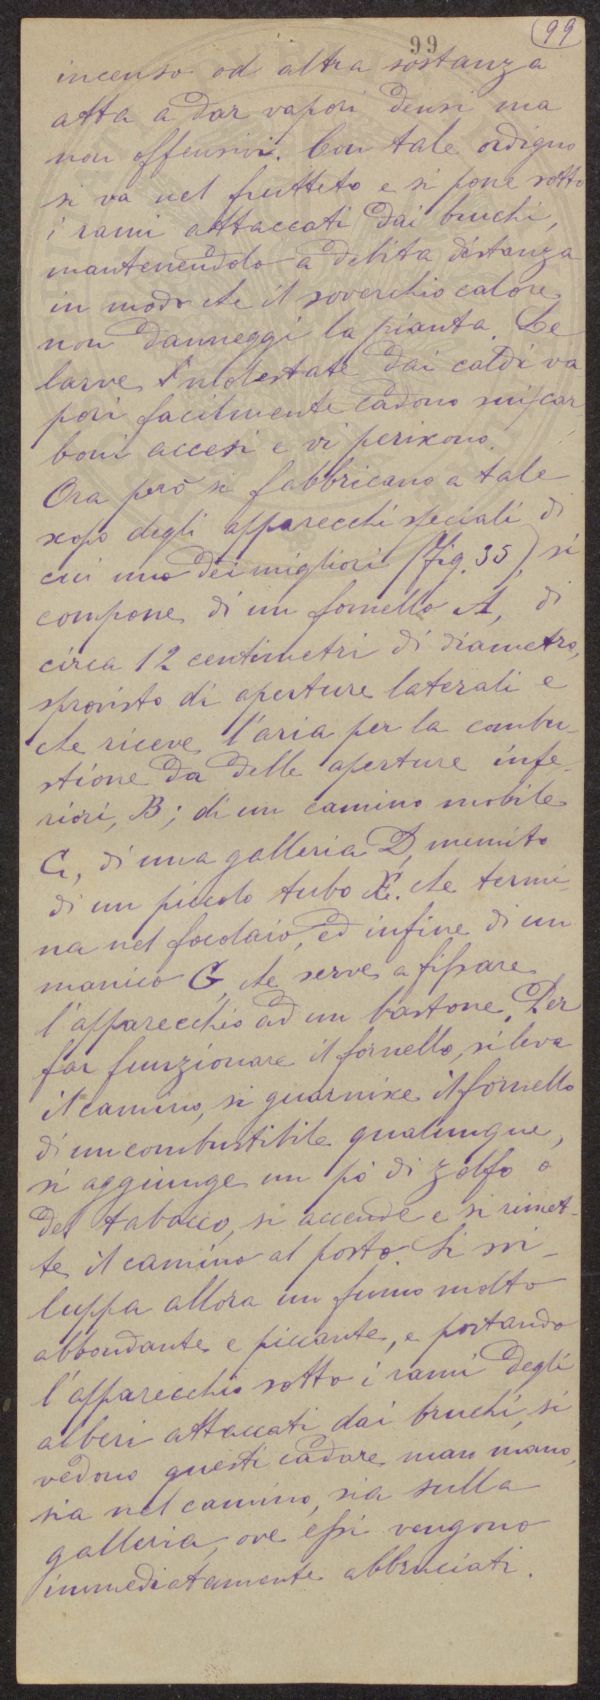 99
99
incenso od altra sostanza
atta a dar vapori densi ma
non offensivi. Con tale ordigno
si va nel frutteto e si pone sotto
i rami attaccati dai bruchi,
mantenendolo a debita distanza
in modo che il soverchio calore
non danneggi la pianta. Le
larve molestate dai caldi va
pori facilmente cadono sui car
boni accesi e vi periscono.
Ora però si fabbricano a tale
scopo degli apparecchi speciali di
cui uno dei migliori (fig. 35) si
compone di un fornello A, di
circa 12 centimetri di diametro,
sprovisto di aperture laterali e
che riceve l'aria per la combu-
stione da delle aperture infe-
riori, B; di un camino mobile
C, di una galleria D, munito
di un piccolo tubo E. che termi-
na nel focolaio, ed infine di un
manico G, che serve a fissare
l'apparecchio ad un bastone. Per
far funzionare il fornello, si leva
il camino, si guarnisce il fornello
di un combustibile qualunque,
si aggiunge un pò di zolfo o
del tabacco, si accende e si rimet-
te il camino al posto Si svi-
luppa allora un fumo molto
abbondante e piccante, e portando
l'apparecchio sotto i rami degli
alberi attaccati dai bruchi, si
vedono questi cadere man mano,
sia nel camino, sia sulla
galleria, ove essi vengono
immediatamente abbruciati.